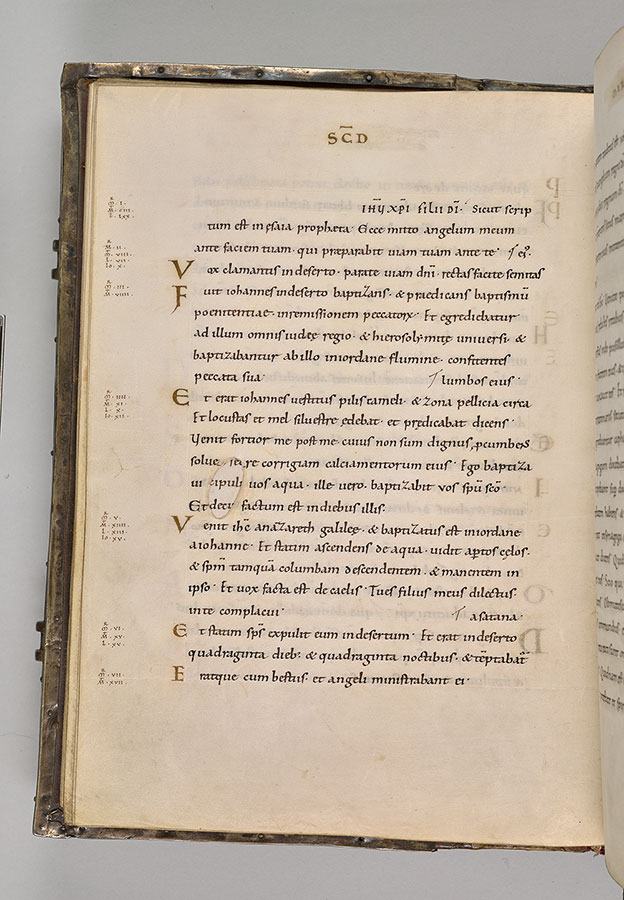 SC̅D
IHY XPI FILII DI. Sicut scrip
tum est in esaia propheta. Ecce mitto angelum meum
ante faciem tuam. qui praeparabit uiam tuam ante te.
Vox clamantis in deserto. parate uiam dnī. rectas facite semitas
Fuit iohannes in deserto baptizans. & praedicans baptismū
poenitentiae. in remissionem peccatorꝝ. Et egrediebatur
ad illum omnis iudeę regio. & hierosolymitę uniuersi. &
baptizabantur ab illo in iordane flumine. confitentes
peccata sua. lumbos eius.
Et erat iohannes uestitus pilis cameli. & zona pellicia circa
Et locustas et mel siluestre edebat. et predicabat dicens.
Uenit fortior me post me. cuius non sum dignus pcumbens
soluere corrigiam calciamentorum eius. Ego baptiza
ui uos aqua. ille uero. baptizabit vos spū scō
Et factum est in diebus illis.
Venit ihc a nazareth galileę. & baptizatus est in iordane
a iohanne. Et statim ascendens de aqua. uidit aptos cęlos.
& spm tamquā columbam descendentem. & manentem in
ipso. Et vox facta est de caelis. Tu es filius meus dilectus.
in te complacui. a satana.
Et statim sps expulit eum in desertum. Et erat in deserto
quadraginta dieb; & quadraginta noctibus. & tēptabat̄
Eratque cum bestiis. et angeli ministrabant ei.